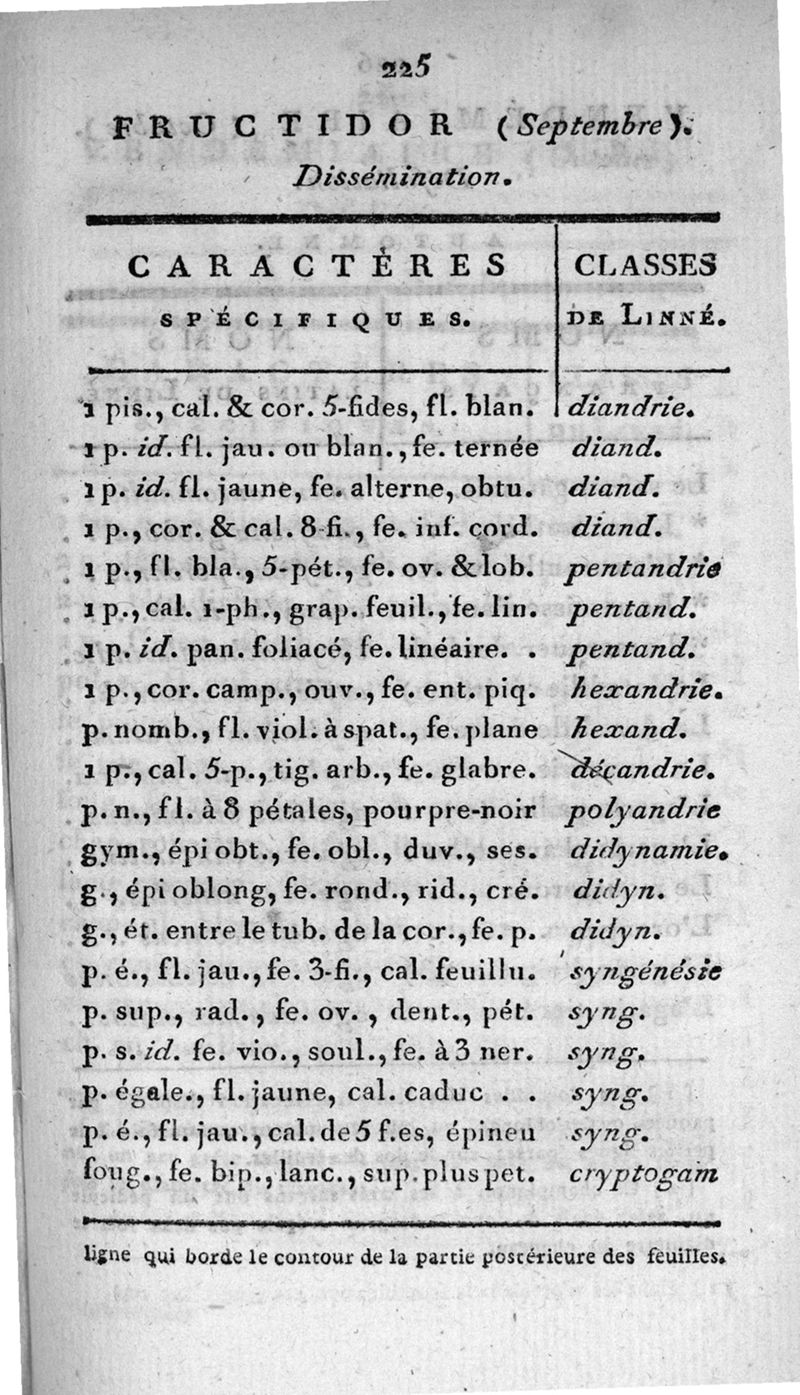 225
FRUCTIDOR (Septembre).
Dissémination.
CARACTÈRES CLASSES
SPÉCIFIQUES. DE LINNÉ.
1 pis., cal. & cor. 5-fides, fl. blan. diandrie.
1 p. id. fl. jau. ou blan., fe. ternée diand.
1 p. id. fl. jaune, fe. alterne, obtu. diand.
1 p., cor. & cal. 8-fi., fe. inf. cord. diand.
1 p., fl. bla., 5-pét., fe. ov. & lob. pentandrie
1 p., cal. 1-ph., grap. feuil., fe. lin. pentand.
1 p. id. pan. foliacé, fe. linéaire. . pentand.
1 p., cor. camp., ouv., fe. ent. piq. hexandrie.
p. nomb., fl. viol. à spat., fe. plane hexand.
1 p., cal. 5-p., tig. arb., fe. glabre. décandrie.
p. n., fl. à 8 pétales, pourpre-noir polyandrie
gym., épi obt., fe. obl., duv., ses. didynamie.
g., épi oblong, fe. rond., rid., cré. didyn.
g., ét. entre le tub. de la cor., fe. p. didyn.
p. é., fl. jau., fe. 3-fi., cal. feuillu. syngénésie
p. sup., rad., fe. ov., dent., pét. syng.
p. s. id. fe. vio., soul., fe. à 3 ner. syng.
p. égale., fl. jaune, cal. caduc . . syng.
p. é., fl. jau., cal. de 5 f.es, épineu syng.
foug., fe. bip., lanc., sup. plus pet. cryptogam
ligne qui borde le contour de la partie postérieure des feuilles.